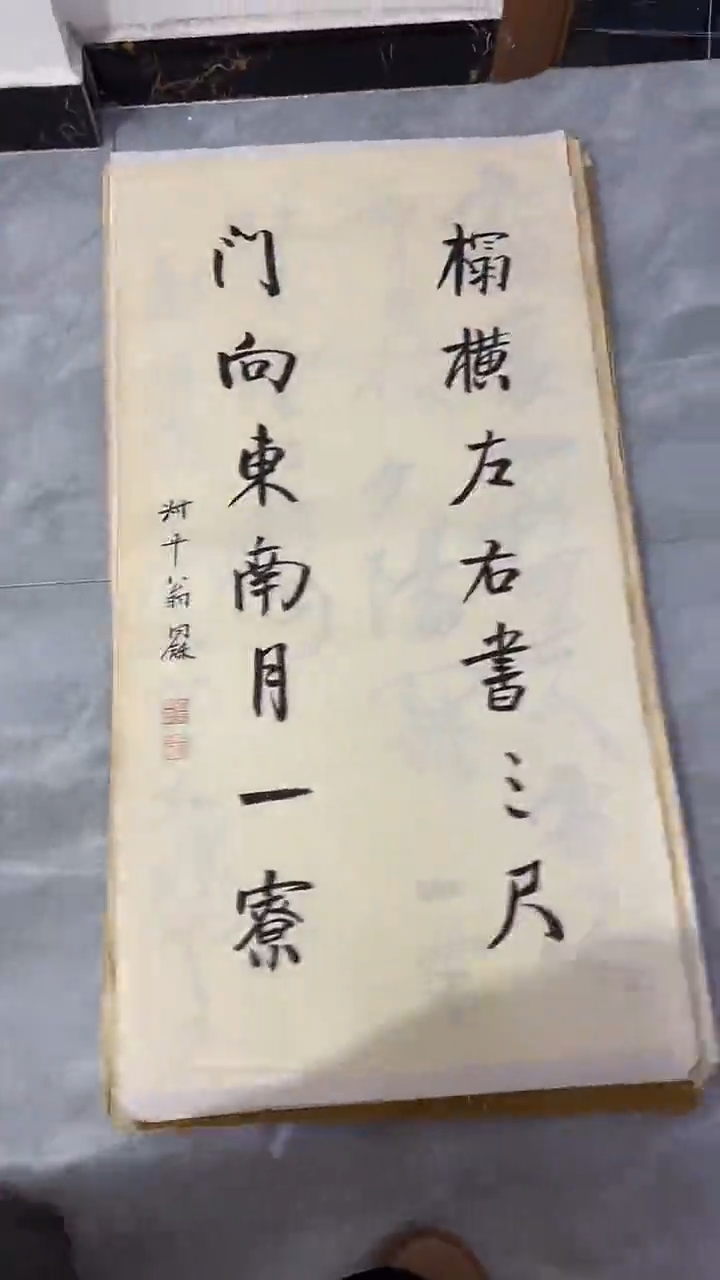 榻横左右書三尺
门向東南月一寮
千翁